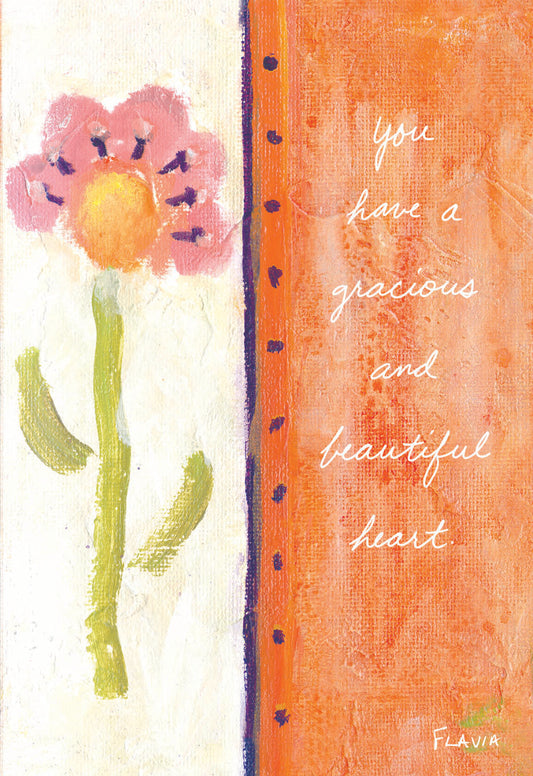 you
have a
gracious
and
beautiful
heart.
FLAVIA